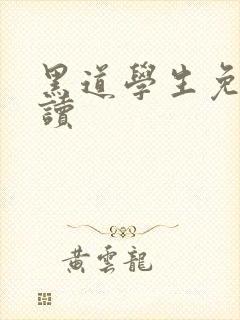 黑道學生免
讀
黃雲龍